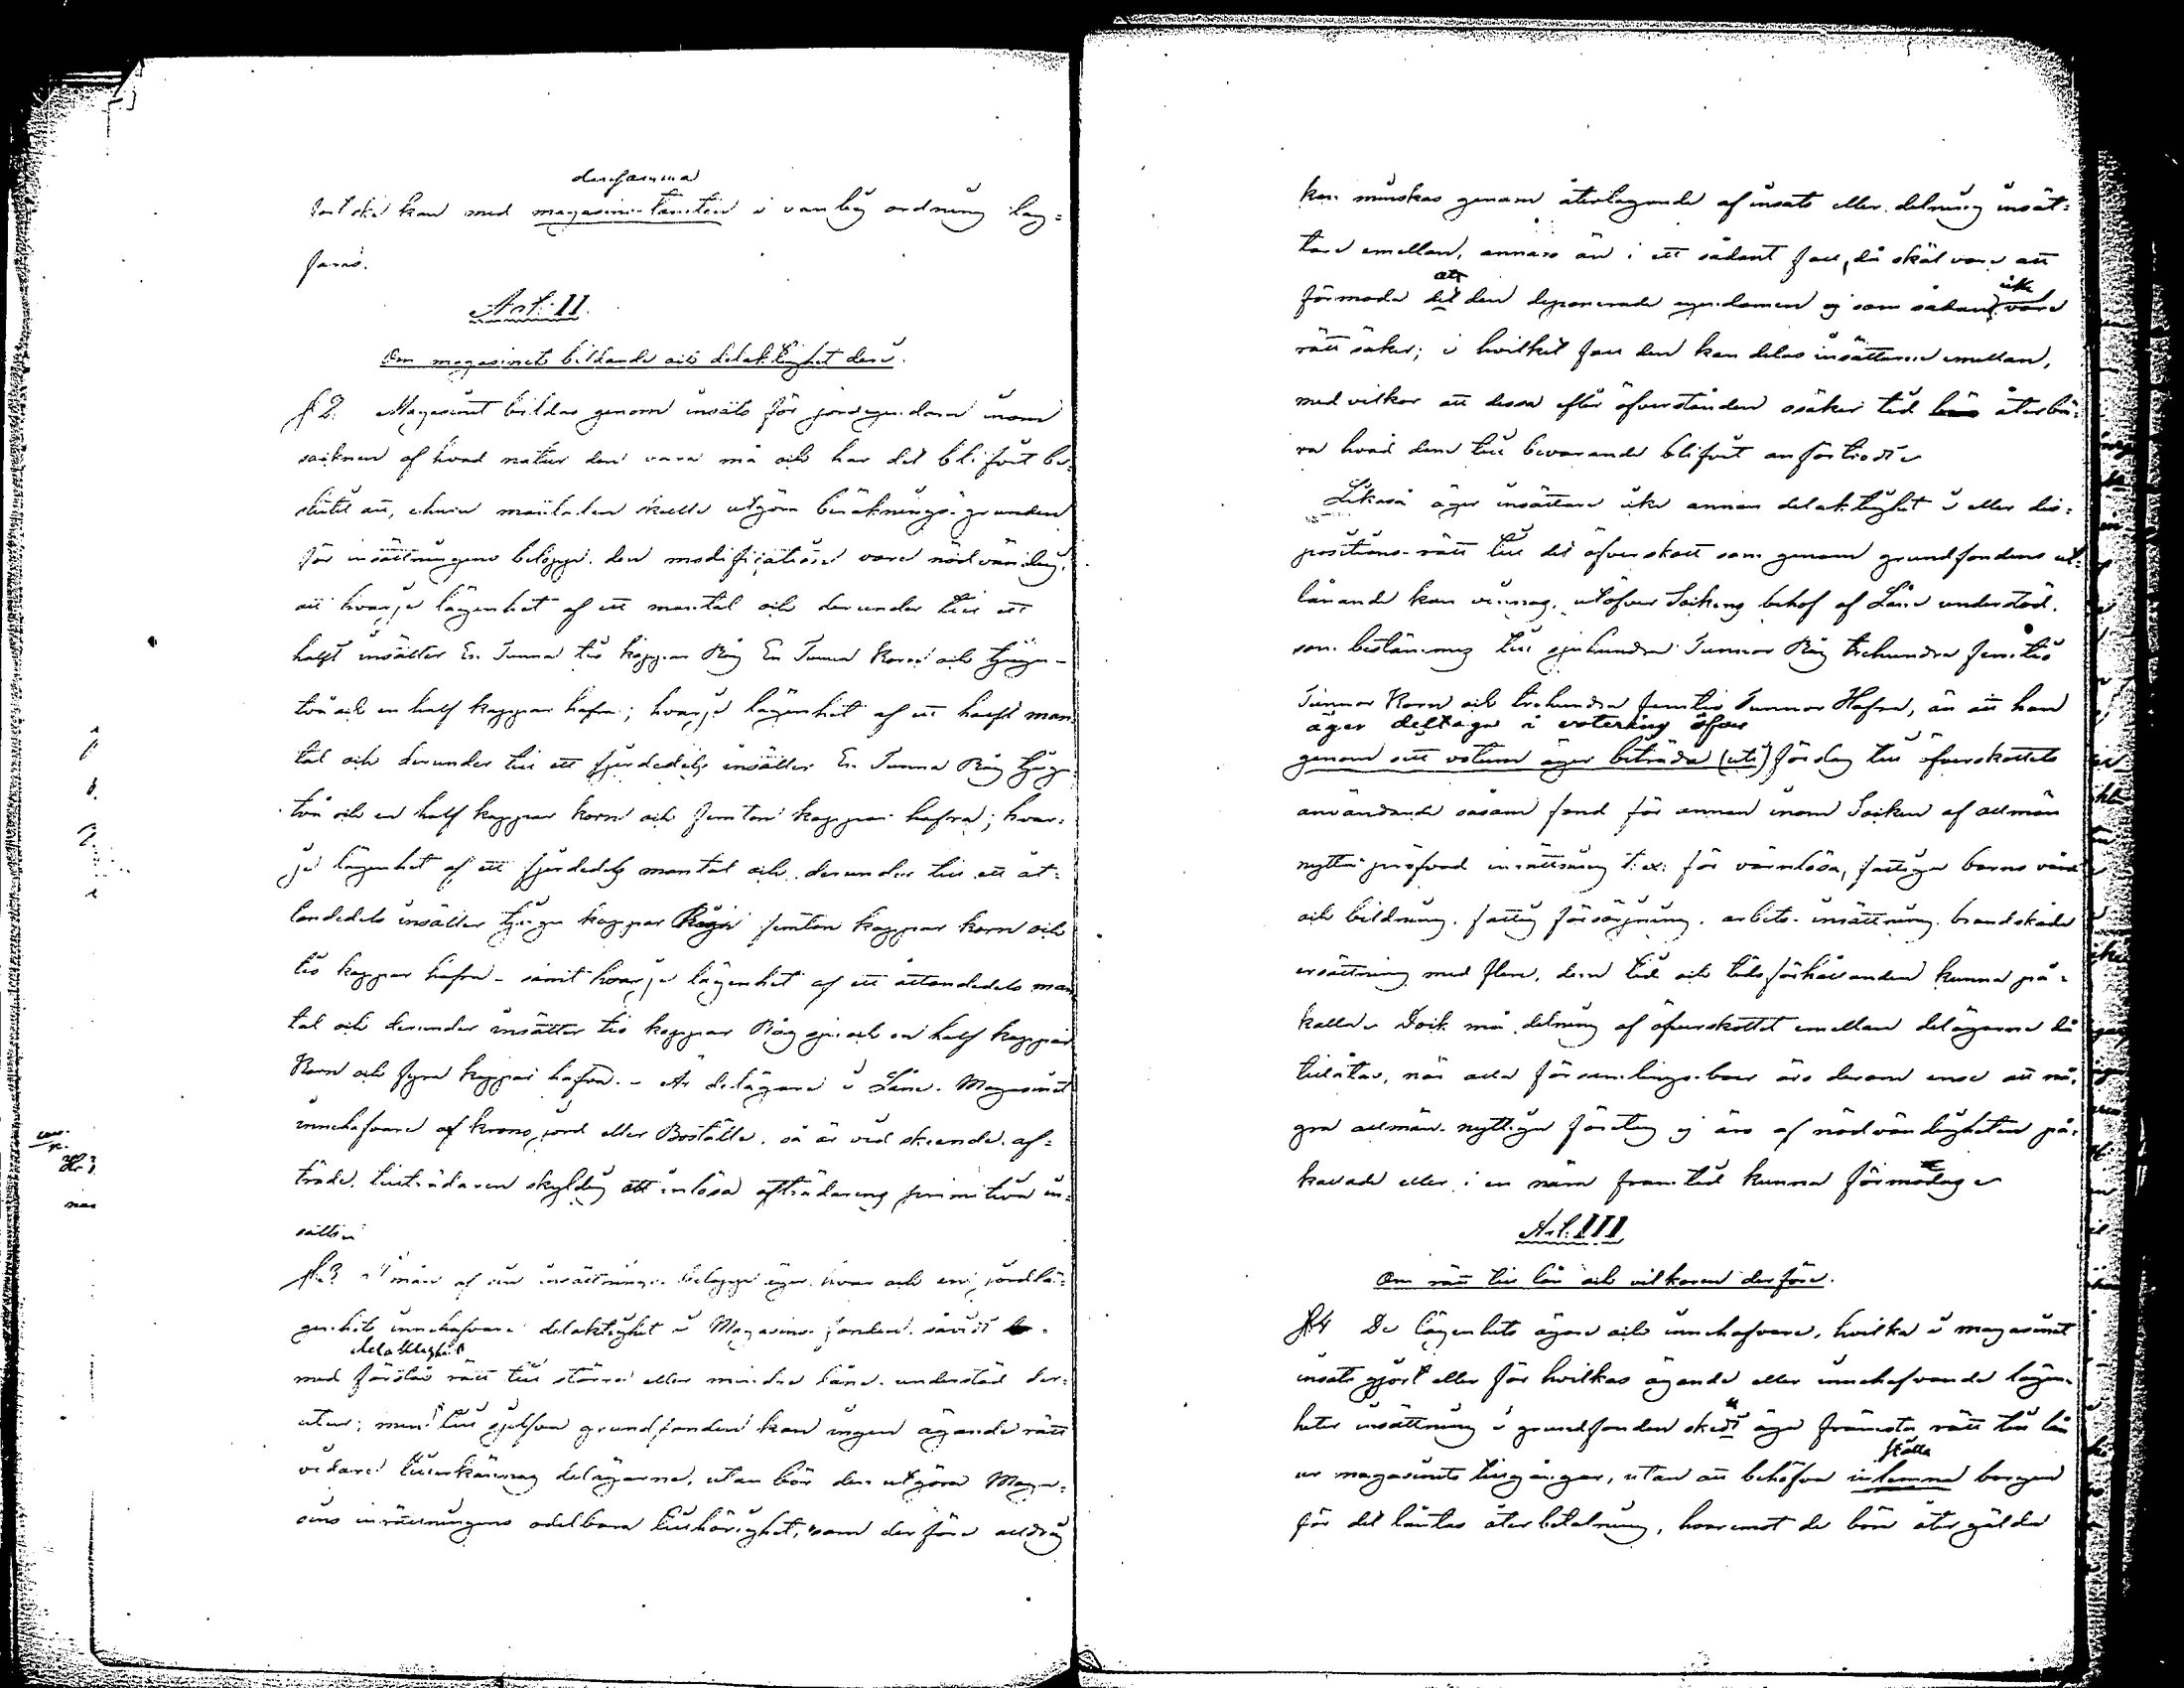 densamma
ske kan med magasins-tomten i vanlig ordning lag-
faras.
Art: II.
Om magasinets bildande och delaktighet deri.
§ 2. Magasinet bildas genom insats för jordegendom inom
socknen af hvad natur den vara må och har det blifvit be-
slutit att, ehuru mantalen skulle utgöra beräknings-grunden
för insättningens belopp, den modification vore nödvändig,
att hvarje lägenhet af ett mantal och derunder till ett
halft insätter En Tunna tio kappar Råg En Tunna Korn och tjugu-
två och en half kappar hafra; hvarje lägenhet af ett halft man-
tal och derunder till ett fjerdedels insätter En Tunna Råg tjugu-
två och en half kappar korn och femton kappar hafra; hvar-
je lägenhet af ett fjerdedels mantal och derunder till ett åt-
tondedels insätter tjugu kappar Råg femton kappar korn och
tio kappar hafra - samt hvarje lägenhet af ett åttondedels man-
tal och derunder insätter tio kappar Råg sju och en half kappar
Korn och fyra kappar hafra. - Är delägare i Låne-Magasinet
innehafvare af krono jord eller Boställe, så är vid skeende af-
träde, tillträdaren skyldig att inlösa afträdarens primitiva in-
satts.
§ 3 I mån af sin insättnings belopp äger hvar och en jordlä-
genhets innehafvare delaktighet i Magasins fonden, såvidt
delaktighet
med förstås rätt till större eller mindre låne-understöd der-
utur; men till sjelfva grundfonden kan ingen ägande rätt
vidare tillerkännas delägarna, utan bör den utgöra Maga-
sins inrättningens odelbara tillhörighet, som derföre aldrig
kan minskas genom återtagande af insats eller delning insät-
tare emellan, annars än i ett sådant fall, då skäl vore att
att icke
förmoda det den deponerade egendomen ej som sådan vore
rätt säker; i hvilket fall den kan delas insättarne emellan,
med vilkor att dessa efter öfverstånden osäker tid återbä-
ra hvad dem till bevarande blifvit anförtrodt
Likaså äger insättare icke annan delaktighet i eller dis-
positions-rätt till det öfverskott som genom grundfondens ut-
lånande kan vinnas, utöfver Sockens behof af Låne understöd,
som bestämmes till sjuhundra Tunnor Råg trehundra femtio
Tunnor Korn och trehundra femtio Tunnor Hafra, än att han
äger deltaga i votering öfver
genom sitt votum äger biträda (uti) förslag till öfverskottets
användande såsom fond för annan inom Socken af allmän
nytta pröfvad inrättning t. ex: för värnlösa, fattiga barns vård
och bildning, fattig försörjning, arbets-inrättning, brandskade
ersättning med flere, dem tid och tidsförhållanden kunna på-
kalla Dock må delning af öfverskottet emellan delägarne då
tillåtas, när alla församlings-boer äro derom ense att nå-
gra allmän-nyttiga företag ej äro af nödvändigheten på-
kallade eller i en nära framtid kunna förmodas
Art: III
Om rätt till lån och vilkoren derföre.
§ 4 De lägenhets ägare och innehafvare, hvilka i magasinet
insats gjort eller för hvilkas ägande eller innehafvande lägen-
heter insättning i grundfonden skedt äga främsta rätt till lån
ställa
ur magasinets tillgångar, utan att behöfva inlemna borgen
för det låntas återbetalning, hvaremot de böra återgälda